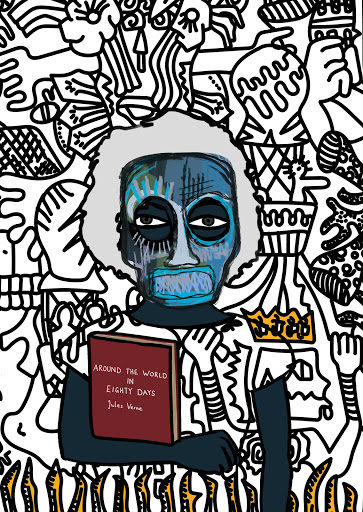 AROUND THE WORLD
IN
EIGHTY DAYS
Jules Verne